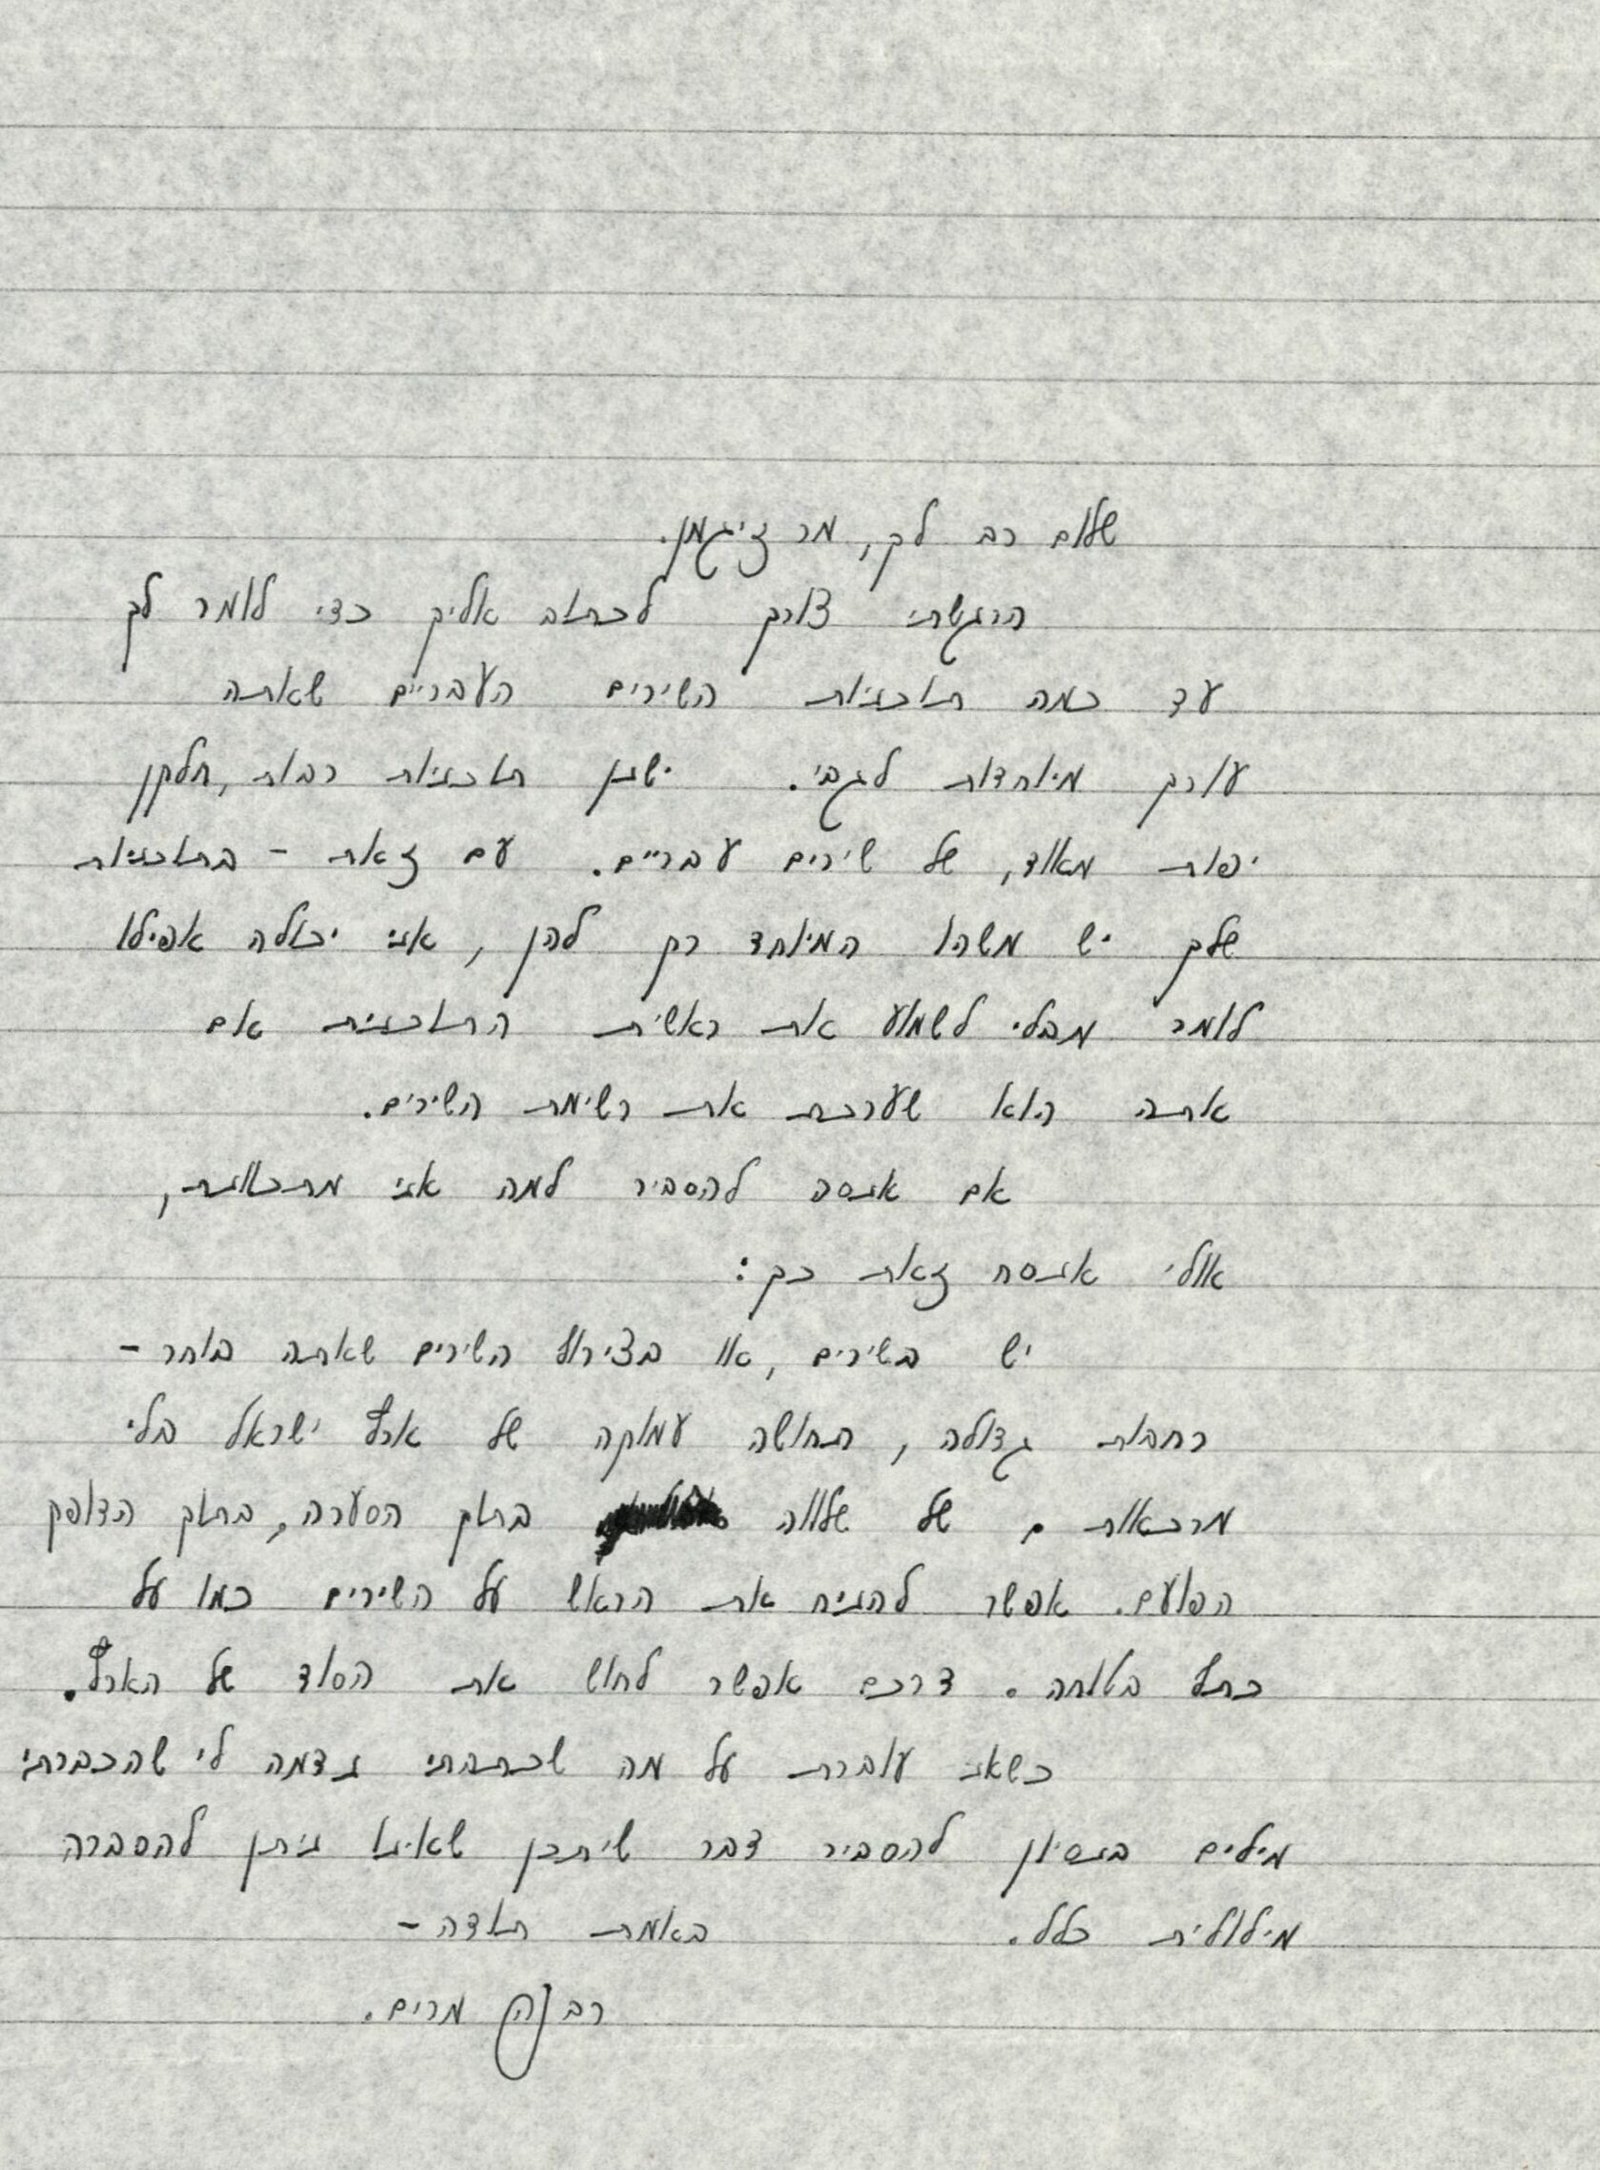 שלום רב לך, מר זיגמן.
הרגשתי צורך לכתוב אליך כדי לומר לך
עד כמה תוכניות השירים העבריים שאתה
עורך מיוחדות לגבי. ישנן תוכניות רבות, חלקן
יפות מאוד, של שירים עבריים. עם זאת - בתוכניות
שלך יש משהו המיוחד רק להן, אני יכולה אפילו
לומר מבלי לשמוע את ראשית התוכנית אם
אתה הוא שערכת את רשימת השירים.
אם אנסה להסביר למה אני מתכוונת,
אולי אנסח זאת כך:
יש בשירים, או בצירוף השירים שאתה בוחר -
רחבות גדולה, תחושה עמוקה של ארץ ישראל בלי
מרכאות, של שלווה בתוך הסערה, בתוך הדופק
הפועם. אפשר להניח את הראש על השירים כמו על
כתף בטוחה. דרכם אפשר לחוש את הסוד של הארץ.
כשאני עוברת על מה שכתבתי נדמה לי שהכברתי
מילים בנסיון להסביר דבר שיתכן שאינו ניתן להסברה
מילולית כלל. באמת תודה -
רבקה מרים.